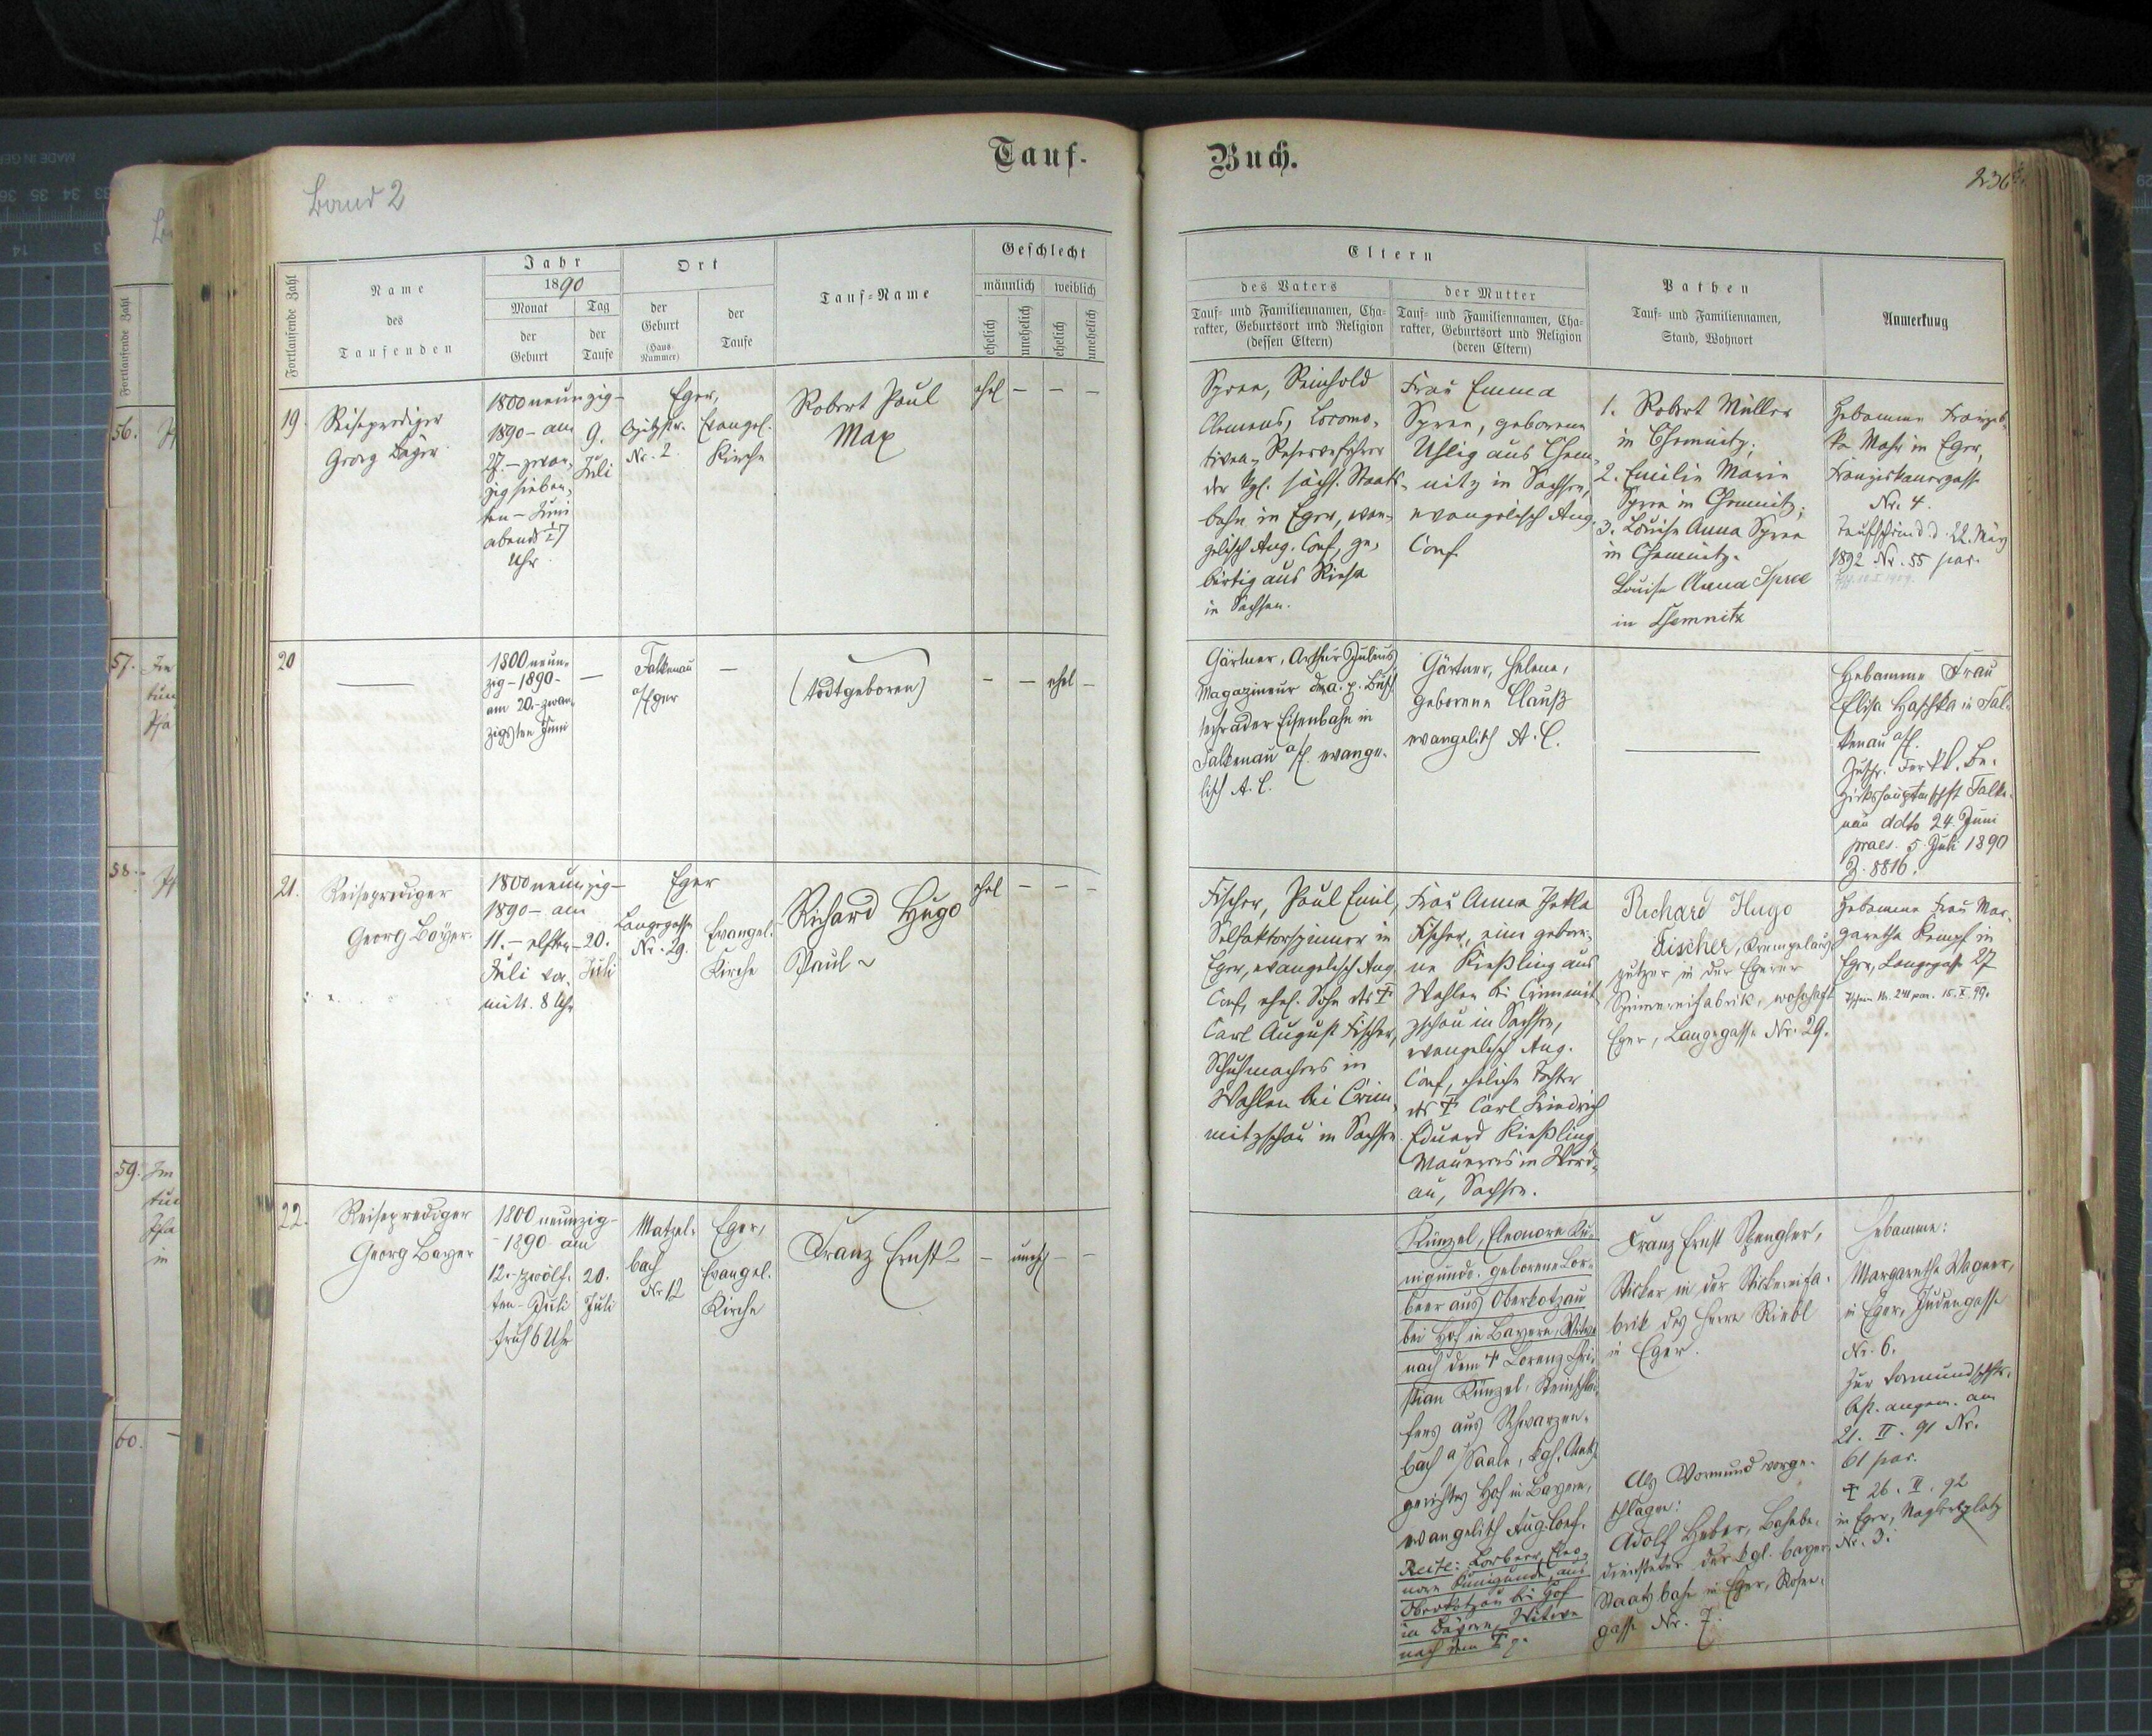 Tauf-
Buch.
Band 2
236
Fortlaufende Zahl
Name
des
Taufenden
Jahr
1890
Monat
der
Geburt
Tag
der
Taufe
Ort
der
Geburt
(Haus-
Nummer)
der
Taufe
Tauf-Name
Geschlecht
männlich
weiblich
ehelich
unehelich
ehelich
unehelich
Eltern
des Vaters
Tauf- und Familiennamen, Cha-
rakter, Geburtsort und Religion
(dessen Eltern)
der Mutter
Tauf- und Familiennamen, Cha-
rakter, Geburtsort und Religion
(deren Eltern)
Pathen
Tauf- und Familiennamen,
Stand, Wohnort
Anmerkung
19
Reiseprediger
Georg Bayer
1800 neunzig-
1890 - am
27. - zwan-
zig sieben-
ten - Juni
abends
Uhr
9.
Juli
Eger,
Nr. 2
Evangel.
Kirche
Robert Paul
Max
ehel
Spree, Reinhold
Clemens, Locomo-
tiven-Reserveführer
der kgl. sächs. Staats-
bahn in Eger, evan-
gelisch Aug. Conf., ge-
bürtig aus Riesa
in Sachsen.
Frau Emma
Spree, geborene
Uhlig aus Chem-
nitz in Sachsen,
evangelisch Aug.
Conf.
1. Robert Müller
in Chemnitz;
2. Emilie Marie
Spree in Chemnitz;
3. Louise Anna Spree
in Chemnitz.
Louise Anna Spree
in Chemnitz
Hebamme
in Eger,
Franziskanergasse
Nr. 4.
Taufschein d.d. 22. März
1892 Nr. 55 par.
20
1800 neun-
zig - 1890 -
am 20. - zwan-
zigsten Juni
Falkenau
a/Eger
(todtgeboren)
ehel
Gärtner, Arthur Julius
Magazineur der a. p. Busch-
tehrader Eisenbahn in
Falkenau a/E. evange-
lisch A. C.
Gärtner, Helene,
geborene Clauß
evangelisch A. C.
Hebamme Frau
Elisa Haschka in Fal-
kenau a/E.
Zuschr. der k.k. Be-
zirkshauptmschft Falke-
nau ddto 24. Juni
praes. 5. Juli 1890
Z. 8816.
21.
Reiseprediger
Georg Bayer.
1800 neunzig-
1890 - am
11. - elften -
Juli vor-
mitt. 8 Uhr
20.
Juli
Eger
Langegasse
Nr. 29.
Evangel.
Kirche
Richard Hugo
Paul
ehel
Fischer, Paul Emil,
Selfaktorspinner in
Eger, evangelisch Aug.
Conf., ehel. Sohn des †
Carl August Fischer,
Schuhmachers in
Wahlen bei Crim-
mitzschau in Sachsen.
Frau Anna Thekla
Fischer, eine gebore-
ne Kießling aus
Wahlen bei Crimmit-
zschau in Sachsen,
evangelisch Aug.
Conf., eheliche Tochter
des † Carl Friedrich
Eduard Kießling,
Maurers in Werd-
au, Sachsen.
Richard Hugo
Fischer, Krempelaus-
putzer in der Egerer
Spinnereifabrik, wohnhaft
Eger, Langegasse Nr. 29.
Hebamme Frau Mar-
garetha Kempf in
Eger, Langegasse 27
Nr. 241 par. 15. X. 99.
22.
Reiseprediger
Georg Bayer
1800 neunzig-
- 1890 am
12. - zwölf-
ten - Juli
früh 6 Uhr
20.
Juli
Matzel-
bach
Nr 12
Eger,
Evangel.
Kirche
Franz Ernst
unehl
Künzel, Eleonore Ku-
nigunde, geborene Lor-
beer aus Oberkotzau
bei Hof in Bayern, Witwe
nach dem † Lorenz Chri-
stian Künzel, Steinschlei-
fers aus Schwarzen-
bach a/Saale, kgl. Amts-
gerichtes Hof in Bayern,
evangelisch Aug. Conf.
Recte: Lorbeer, Eleo-
nore Kunigunde, aus
Oberkotzau bei Hof
in Bayern, Witwe
nach dem †
Franz Ernst Spengler,
Sticker in der Stickereifa-
brik des Herrn Riedl
in Eger.
Als Vormund vorge-
schlagen:
Adolf Huber, Bahnbe-
diensteter der kgl. bayer.
Staatsbahn in Eger, Rosen-
gasse Nr. 7.
Hebamme:
Margaretha Wagner,
in Eger, Judengasse
Nr. 6.
Zur Vormundschfts-
angen. am
21. II. 91 Nr.
61 par.
† 26. II. 92
in Eger,
Nr. 3.
56.
57.
58.
59.
60.